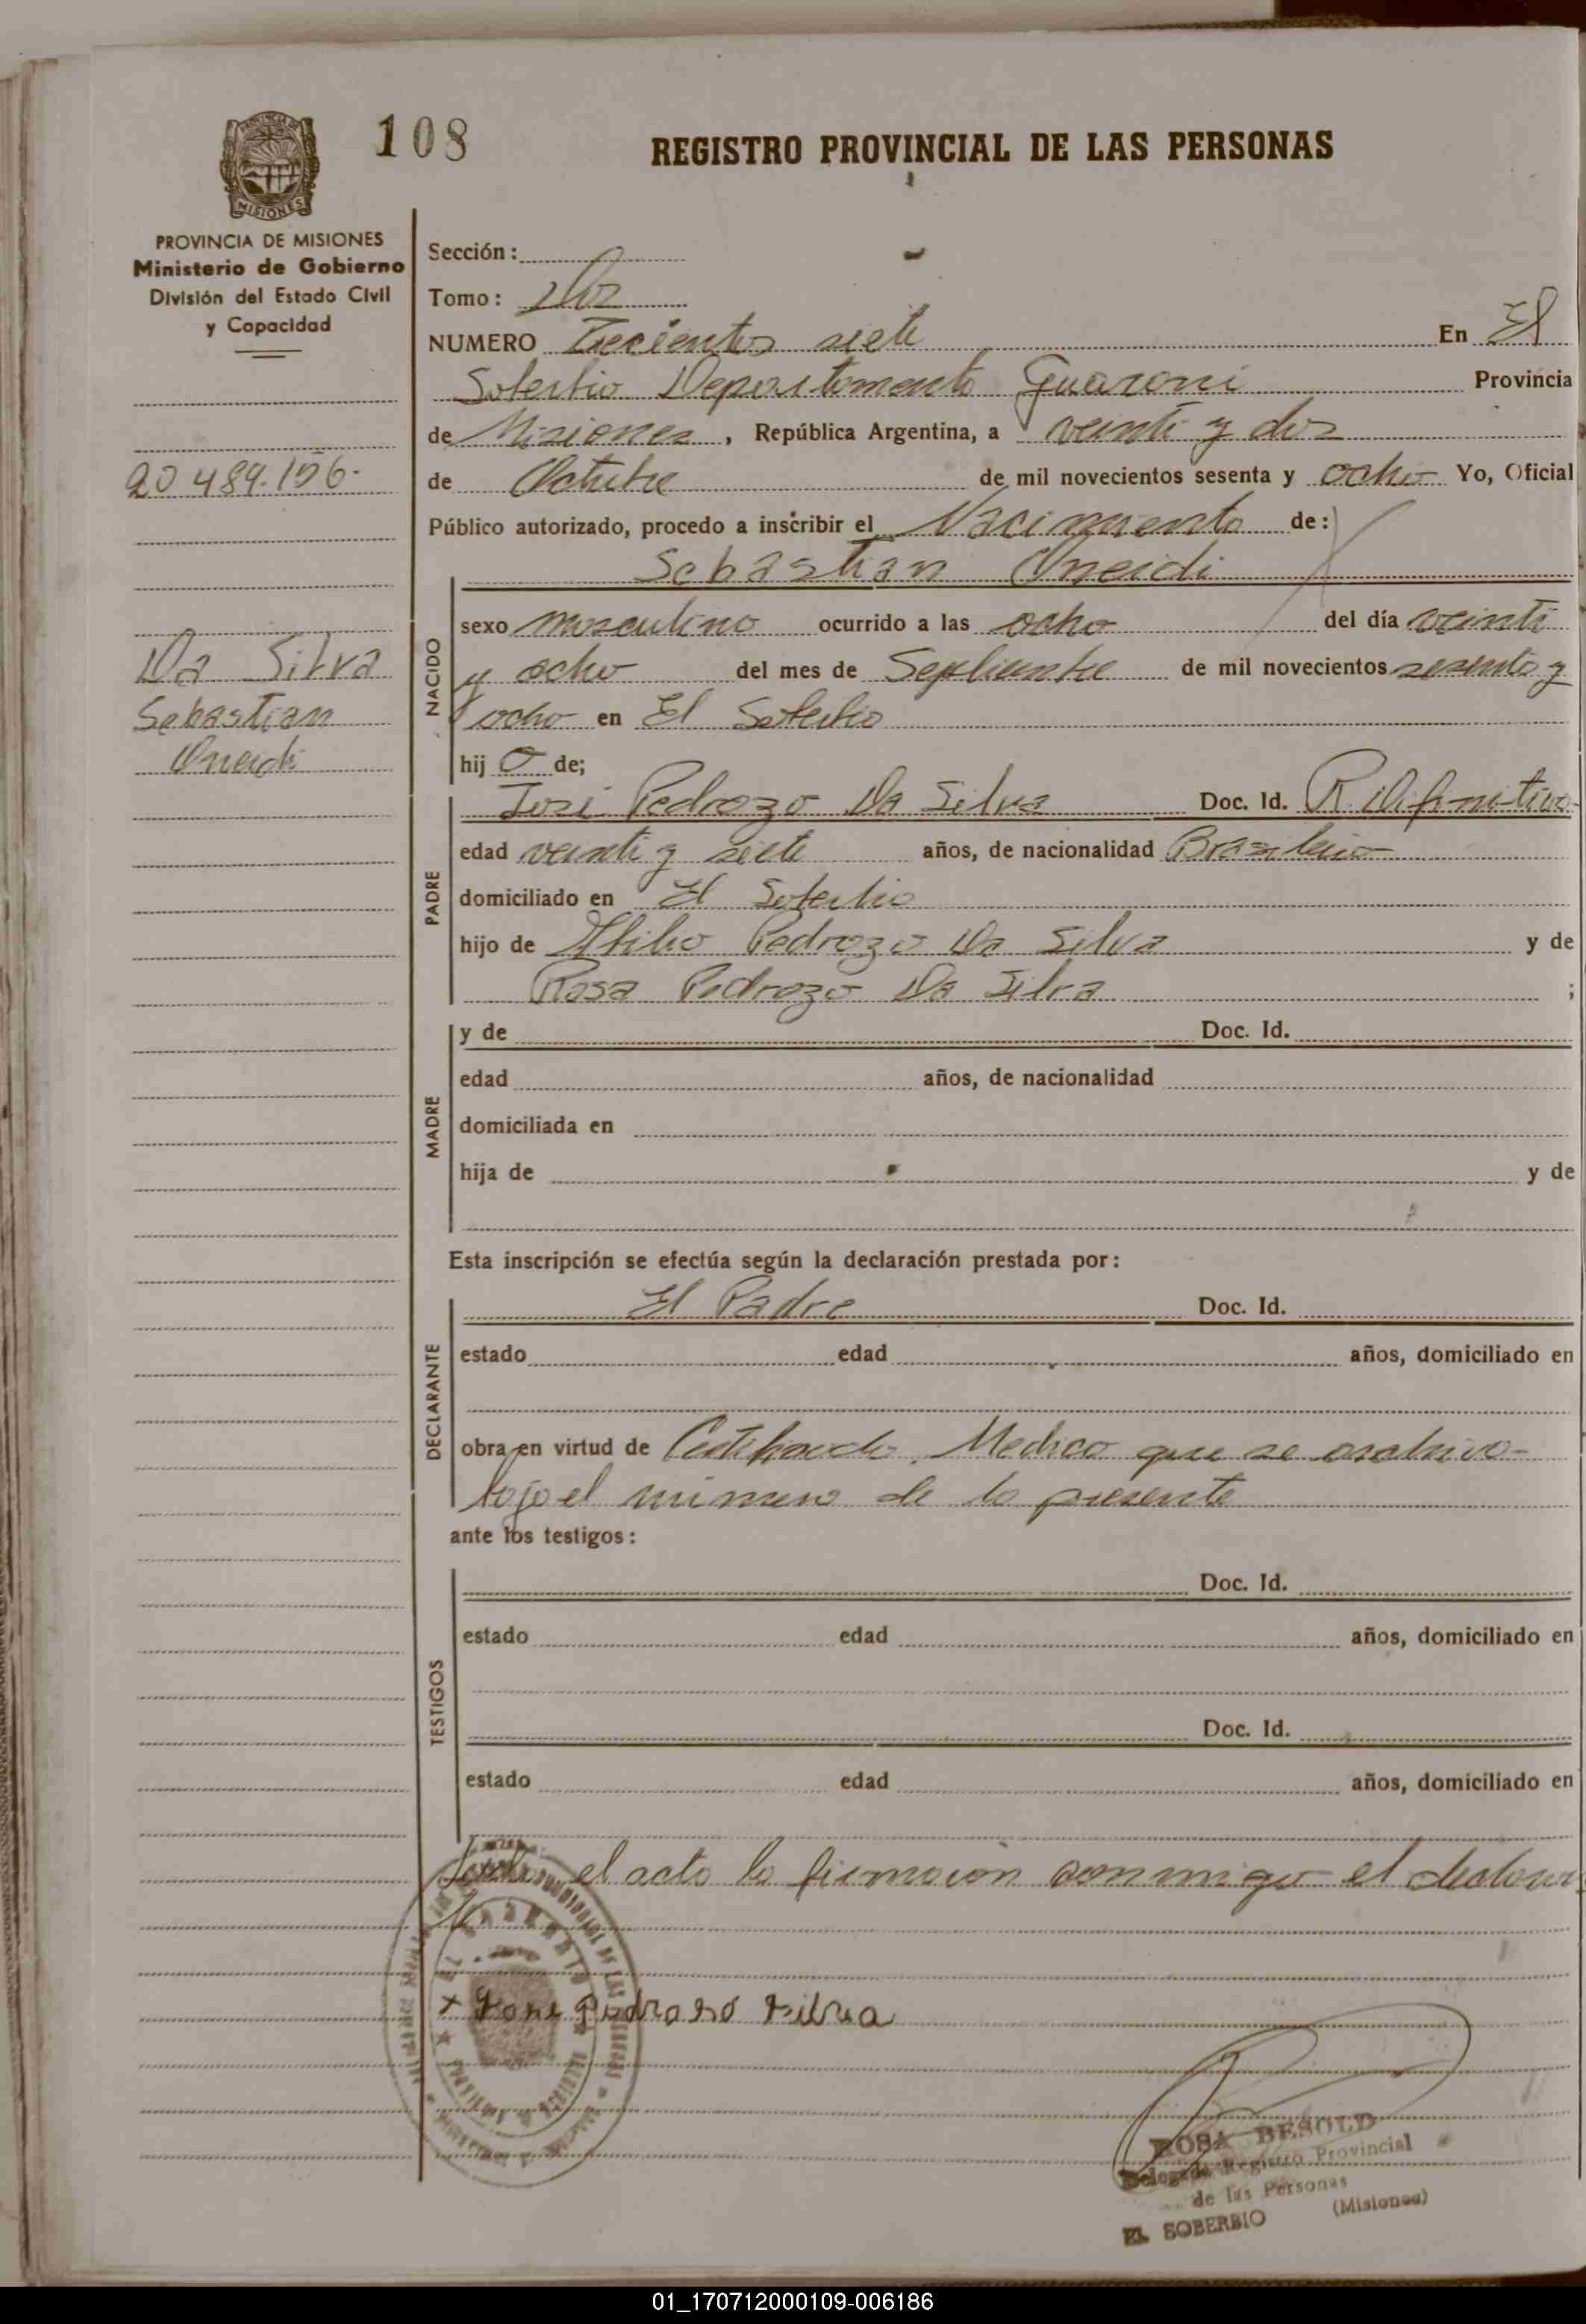 108
REGISTRO PROVINCIAL DE LAS PERSONAS
MISIONES
PROVINCIA DE MISIONES
Ministerio de Gobierno
División del Estado Civil
y Capacidad
20 489.156-
Da Silva
Sebastian
Oneidi
Sección:
Tomo: Dos
NUMERO Trecientos siete En El
Soberbio Departamento Guarani Provincia
de Misiones, República Argentina, a veinti y dos
de Octubre de mil novecientos sesenta y ocho Yo, Oficial
Público autorizado, procedo a inscribir el Nacimiento de:
Sebastian Oneidi
NACIDO
sexo masculino ocurrido a las ocho del día veinti
y ocho del mes de Septiembre de mil novecientos sesenta y
ocho en El Soberbio
hij o de;
PADRE
José Pedrozo Da Silva Doc. Id. R. Difinitivo
edad veinti y siete años, de nacionalidad Brasilero
domiciliado en El Soberbio
hijo de Pedrozo Da Silva y de
Rosa Pedrozo Da Silva ;
MADRE
y de Doc. Id.
edad años, de nacionalidad
domiciliada en
hija de y de
Esta inscripción se efectúa según la declaración prestada por:
DECLARANTE
El Padre Doc. Id.
estado edad años, domiciliado en
obra en virtud de Certificado Medico que se archiva
bajo el numero de la presente
ante los testigos:
TESTIGOS
Doc. Id.
estado edad años, domiciliado en
Doc. Id.
estado edad años, domiciliado en
el acta la firmaron conmigo el
x Jose Pedroso Silvia
ROSA BESOLD
Delegada Registro Provincial
de las Personas
EL SOBERBIO (Misiones)
01_170712000109-006186